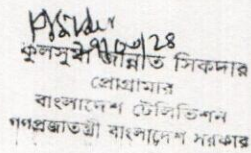 কুলসুম জান্নাত সিকদার
প্রোগ্রামার
বাংলাদেশ টেলিভিশন
গণপ্রজাতন্ত্রী বাংলাদেশ সরকার